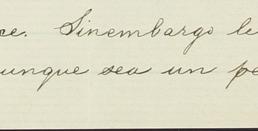 ce. Sinembargo le
unque sea un pe